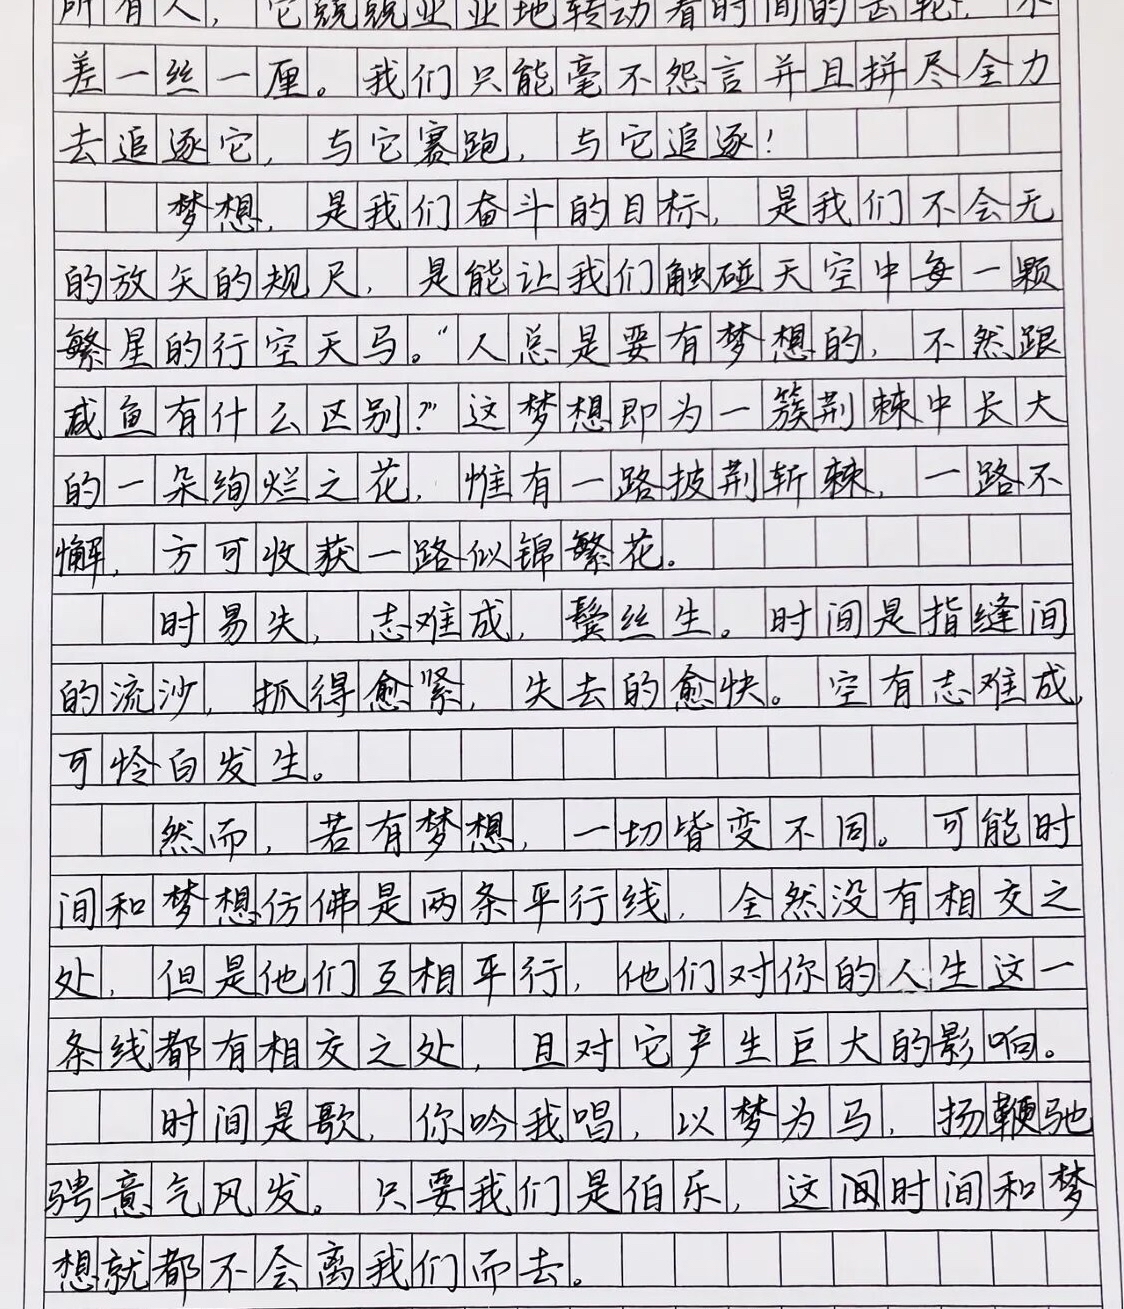 所有人，它兢兢业业地转动着时间的齿轮，不
差一丝一厘。我们只能毫不怨言并且拼尽全力
去追逐它，与它赛跑，与它追逐！
梦想，是我们奋斗的目标，是我们不会无
的放矢的规尺，是能让我们触碰天空中每一颗
繁星的行空天马。“人总是要有梦想的，不然跟
咸鱼有什么区别？”这梦想即为一簇荆棘中长大
的一朵绚烂之花，惟有一路披荆斩棘，一路不
懈，方可收获一路似锦繁花。
时易失，志难成，鬓丝生。时间是指缝间
的流沙，抓得愈紧，失去的愈快。空有志难成，
可怜白发生。
然而，若有梦想，一切皆变不同。可能时
间和梦想仿佛是两条平行线，全然没有相交之
处，但是他们互相平行，他们对你的人生这一
条线都有相交之处，且对它产生巨大的影响。
时间是歌，你吟我唱，以梦为马，扬鞭驰
骋意气风发。只要我们是伯乐，这间时间和梦
想就都不会离我们而去。